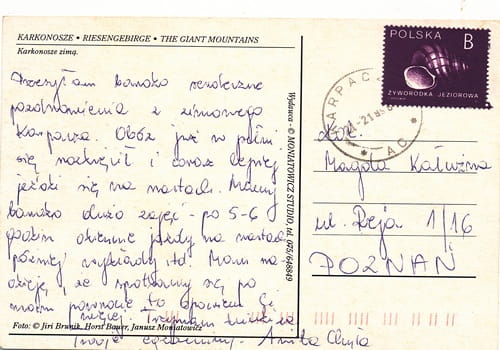 KARKONOSZE • RIESENGEBIRGE • THE GIANT MOUNTAINS
Karkonosze zimą.
Przesyłam bardzo serdeczne
pozdrowienia z zimowego
Karpacza. Obóz już w pełni
się rozkręcił i coraz lepiej
jeździ się na nartach. Mamy
bardzo dużo zajęć - po 5-6
godzin dziennie jazdy na nartach
później wykłady itd. Mam na-
dzieję, że spotkamy się po
moim powrocie to opowiem Ci
więcej. Trzymam
Anita
Foto: © Jiri Brunik, Horst Bauer, Janusz Moniatowicz
Wydawca - © MONIATOWICZ STUDIO, tel. 075/648849
POLSKA B
ŻYWORODKA JEZIOROWA
KARPACZ
Magda
ul. Reja 1/16
POZNAŃ